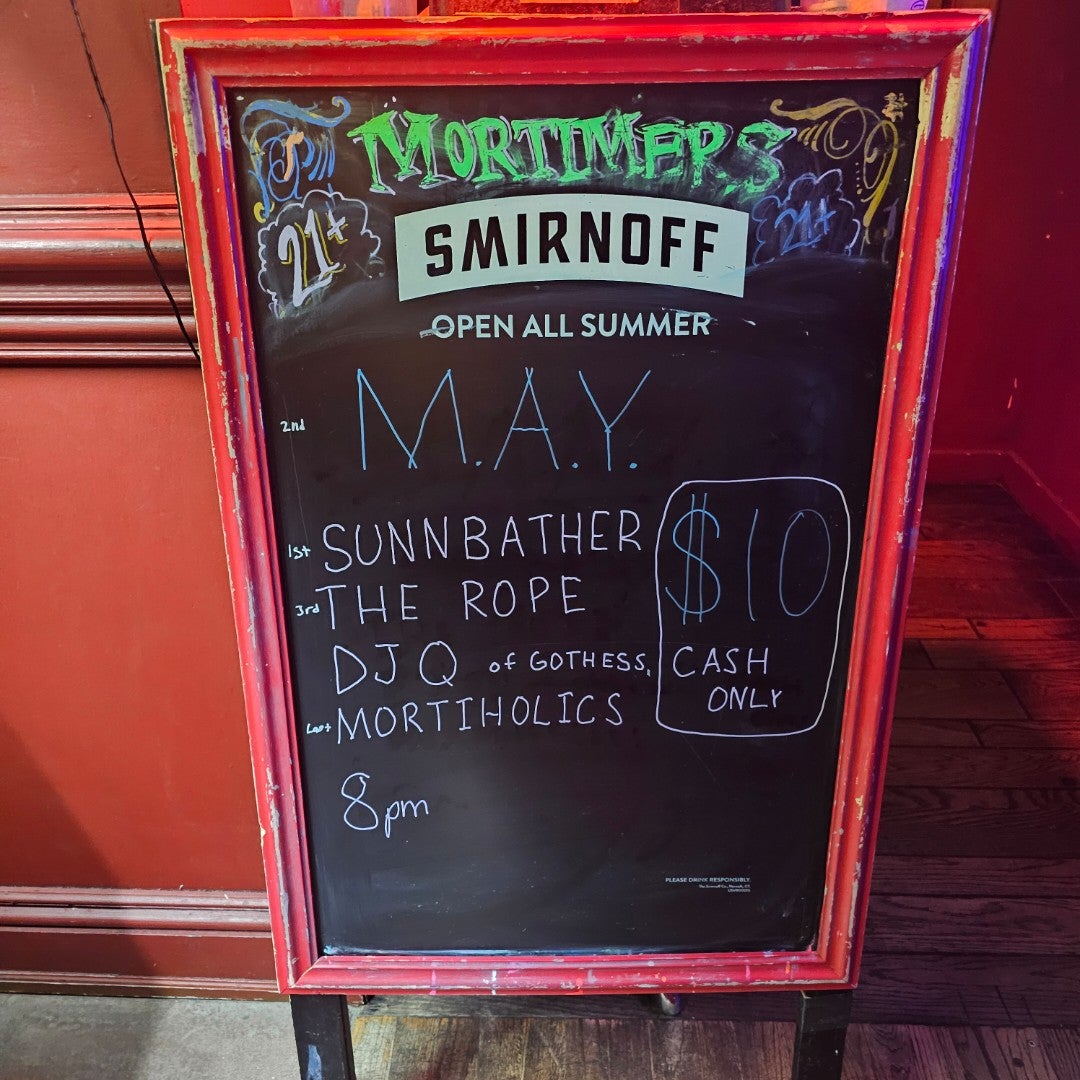 MORTIMERS
21+
21+
SMIRNOFF
OPEN ALL SUMMER
2nd M.A.Y.
1st SUNNBATHER
3rd THE ROPE
DJ Q of GOTHESS,
Last MORTIHOLICS
$10
CASH
ONLY
8pm
PLEASE DRINK RESPONSIBLY.